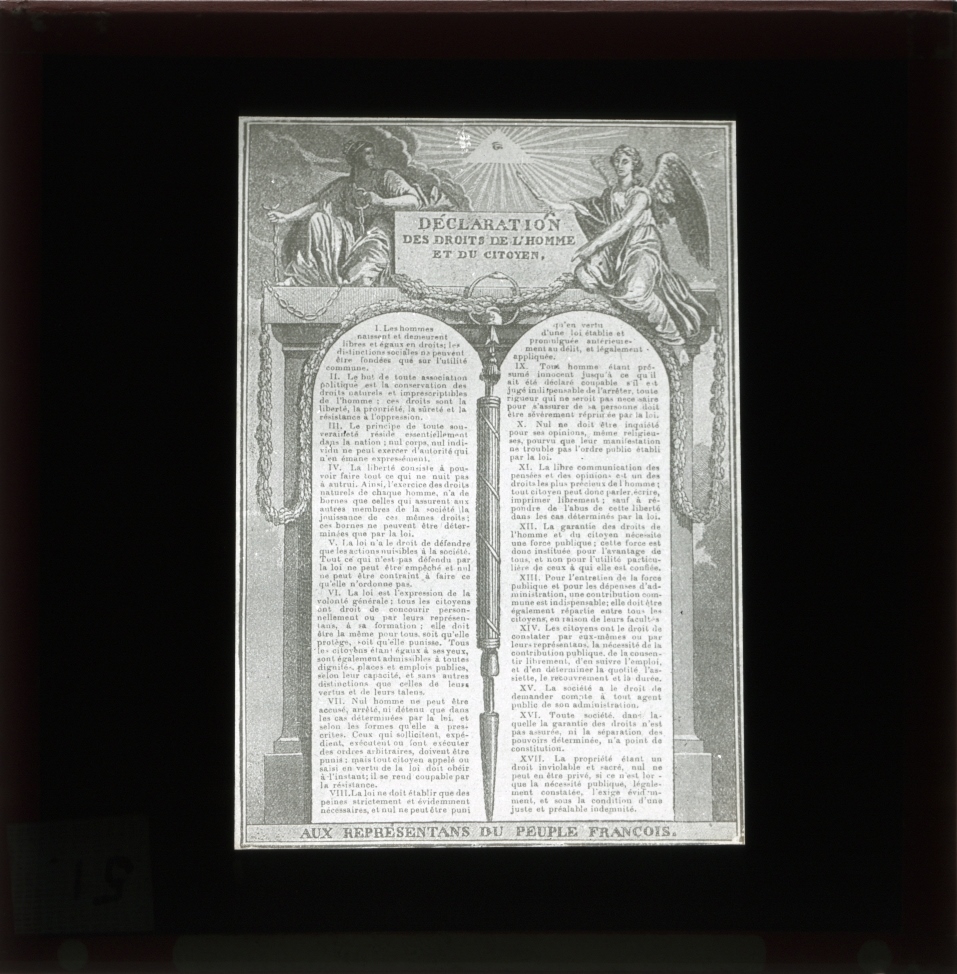 DÉCLARATION
DES DROITS DE L'HOMME
ET DU CITOYEN,
I. Les hommes
naissent et demeurent
libres et égaux en droits; les
distinctions sociales ne peuvent
être fondées que sur l'utilité
commune.
II. Le but de toute association
politique est la conservation des
droits naturels et imprescriptibles
de l'homme; ces droits sont la
liberté, la propriété, la sûreté et la
résistance à l'oppression.
III. Le principe de toute sou-
veraineté réside essentiellement
dans la nation; nul corps, nul indi-
vidu ne peut exercer d'autorité qui
n'en émane expressément.
IV. La liberté consiste à pou-
voir faire tout ce qui ne nuit pas
à autrui. Ainsi, l'exercice des droits
naturels de chaque homme, n'a de
bornes que celles qui assurent aux
autres membres de la société la
jouissance de ces mêmes droits;
ces bornes ne peuvent être déter-
minées que par la loi.
V. La loi n'a le droit de défendre
que les actions nuisibles à la société.
Tout ce qui n'est pas défendu par
la loi ne peut être empêché et nul
ne peut être contraint à faire ce
qu'elle n'ordonne pas.
VI. La loi est l'expression de la
volonté générale; tous les citoyens
ont droit de concourir person-
nellement ou par leurs représen-
tans, à sa formation; elle doit
être la même pour tous, soit qu'elle
protège, soit qu'elle punisse. Tous
les citoyens étant égaux à ses yeux,
sont également admissibles à toutes
dignités, places et emplois publics,
selon leur capacité, et sans autres
distinctions que celles de leurs
vertus et de leurs talens.
VII. Nul homme ne peut être
accusé, arrêté, ni détenu que dans
les cas déterminées par la loi, et
selon les formes qu'elle a pres-
crites. Ceux qui sollicitent, expé-
dient, exécutent ou font exécuter
des ordres arbitraires, doivent être
punis; mais tout citoyen appelé ou
saisi en vertu de la loi doit obéir
à l'instant; il se rend coupable par
la résistance.
VIII. La loi ne doit établir que des
peines strictement et évidemment
nécessaires, et nul ne peut être puni
qu'en vertu
d'une loi établie et
promulguée antérieure-
ment au délit, et légalement
appliquée.
IX. Tout homme étant pré-
sumé innocent jusqu'à ce qu'il
ait été déclaré coupable s'il est
jugé indispensable de l'arrêter, toute
rigueur qui ne seroit pas necessaire
pour s'assurer de sa personne doit
être sévèrement réprimée par la loi.
X. Nul ne doit être inquiété
pour ses opinions, même religieu-
ses, pourvu que leur manifestation
ne trouble pas l'ordre public établi
par la loi.
XI. La libre communication des
pensées et des opinions est un des
droits les plus précieux de l'homme;
tout citoyen peut donc parler, écrire,
imprimer librement; sauf à ré-
pondre de l'abus de cette liberté
dans les cas déterminés par la loi.
XII. La garantie des droits de
l'homme et du citoyen nécessite
une force publique; cette force est
donc instituée pour l'avantage de
tous, et non pour l'utilité particu-
lière de ceux à qui elle est confiée.
XIII. Pour l'entretien de la force
publique et pour les dépenses d'ad-
ministration, une contribution com-
mune est indispensable; elle doit être
également répartie entre tous les
citoyens, en raison de leurs facultés
XIV. Les citoyens ont le droit de
constater par eux-mêmes ou par
leurs représentans, la nécessité de la
contribution publique, de la consen-
tir librement, d'en suivre l'emploi,
et d'en déterminer la quotité l'as-
siette, le recouvrement et la durée.
XV. La société a le droit de
demander compte à tout agent
public de son administration.
XVI. Toute société, dans la-
quelle la garantie des droits n'est
pas assurée, ni la séparation des
pouvoirs déterminée, n'a point de
constitution.
XVII. La propriété étant un
droit inviolable et sacré, nul ne
peut en être privé, si ce n'est lors-
que la nécessité publique, légale-
ment constatée, l'exige évidem-
ment, et sous la condition d'une
juste et préalable indemnité.
AUX REPRÉSENTANS DU PEUPLE FRANÇOIS.